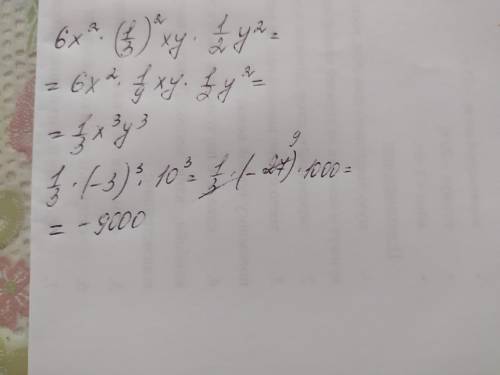 6x² · (1/3)² xy · 1/2 y² =
= 6x² · 1/9 xy · 1/2 y² =
= 1/3 x³y³
1/3 · (-3)³ · 10³ = 1/3 · (-27) 9 · 1000 =
= -9000